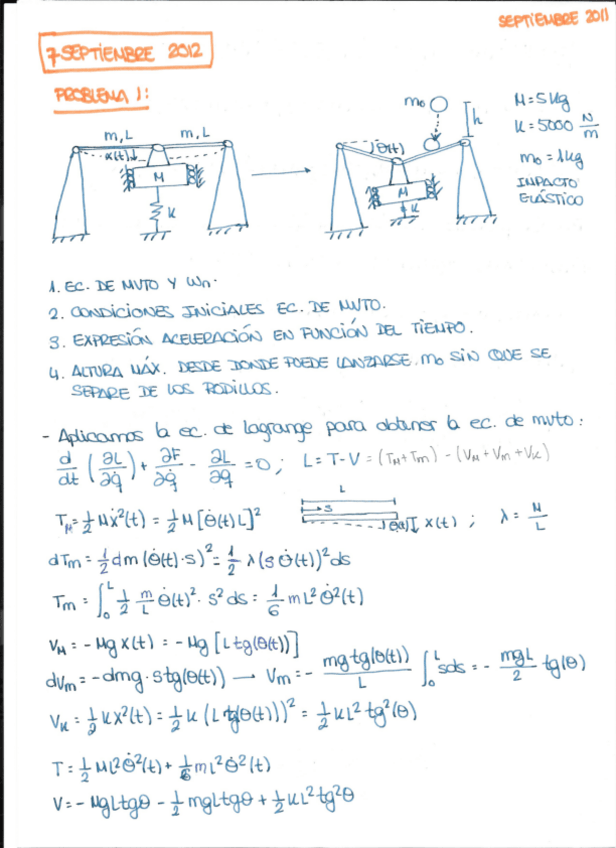 SEPTIEMBRE 2011
7 SEPTIEMBRE 2012
PROBLEMA 1:
m, L m, L
x(t)↓
M
K
m₀
h
θ(t)
M
K
M=5Kg
K=5000 N/m
m₀=1Kg
IMPACTO
ELÁSTICO
1. EC. DE MVTO Y ωn.
2. CONDICIONES INICIALES EC. DE MVTO.
3. EXPRESIÓN ACELERACIÓN EN FUNCIÓN DEL TIEMPO.
4. ALTURA MÁX. DESDE DONDE PUEDE LANZARSE m₀ SIN QUE SE
SEPARE DE LOS RODILLOS.
- Aplicamos la ec. de lagrange para obtener la ec. de mvto:
d/dt (∂L/∂q̇) + ∂F/∂q̇ - ∂L/∂q = 0 ; L=T-V = (T_M+T_m) - (V_M+V_m+V_K)
T_M = 1/2 Mẋ²(t) = 1/2 M[θ̇(t)L]²
L
s
θ(t) x(t) ; λ = M/L
dT_m = 1/2 dm (θ̇(t)·s)² = 1/2 λ(s θ̇(t))² ds
T_m = ∫₀ᴸ 1/2 m/L θ̇(t)²· s² ds = 1/6 mL² θ̇²(t)
V_M = -Mg x(t) = -Mg [L tg(θ(t))]
dV_m = -dmg · s tg(θ(t)) → V_m = - mg tg(θ(t))/L ∫₀ᴸ sds = - mgL/2 tg(θ)
V_K = 1/2 Kx²(t) = 1/2 K (L tg(θ(t)))² = 1/2 KL² tg²(θ)
T = 1/2 ML²θ̇²(t) + 1/6 mL²θ̇²(t)
V = -MgLtgθ - 1/2 mgLtgθ + 1/2 KL² tg²θ